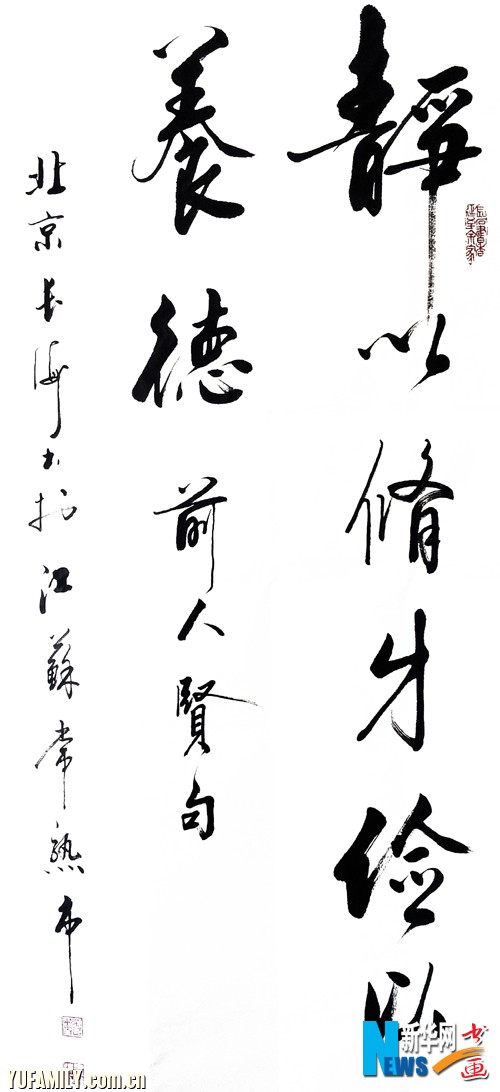 靜以脩身儉以
養德 前人賢句
北京長海書於江蘇常熟市
新华网
NEWS
书画
YUFAMILY.com.cn